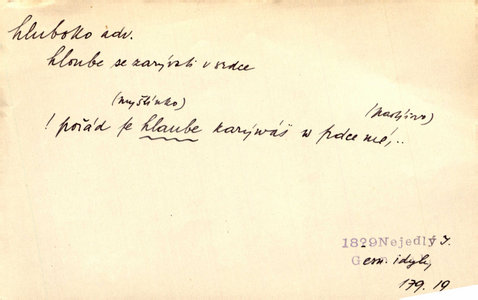 hluboko adv.
hloube se zarývati v srdce
(myšlínko) (Marḱýnko)
! pořád ſe hlaube zarýwáš w ſrdce mé,..
1829 Nejedlý J.
Gesn. idyly
179.19